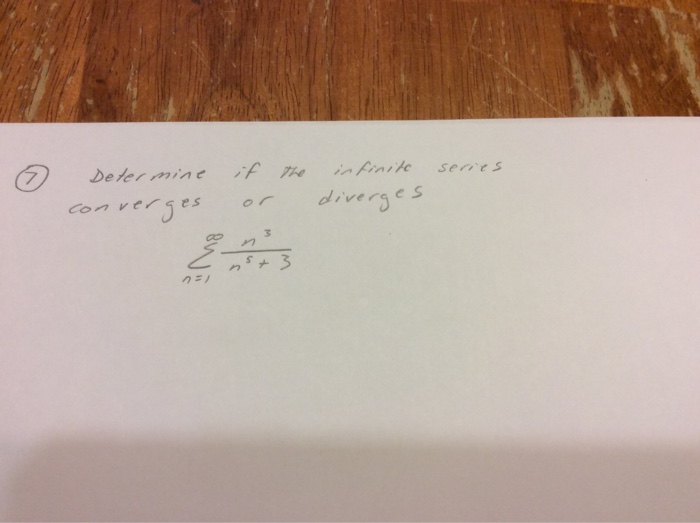 ⑦ Determine if the infinite series
converges or diverges
∞
∑ n³ / n⁵ + 3
n=1